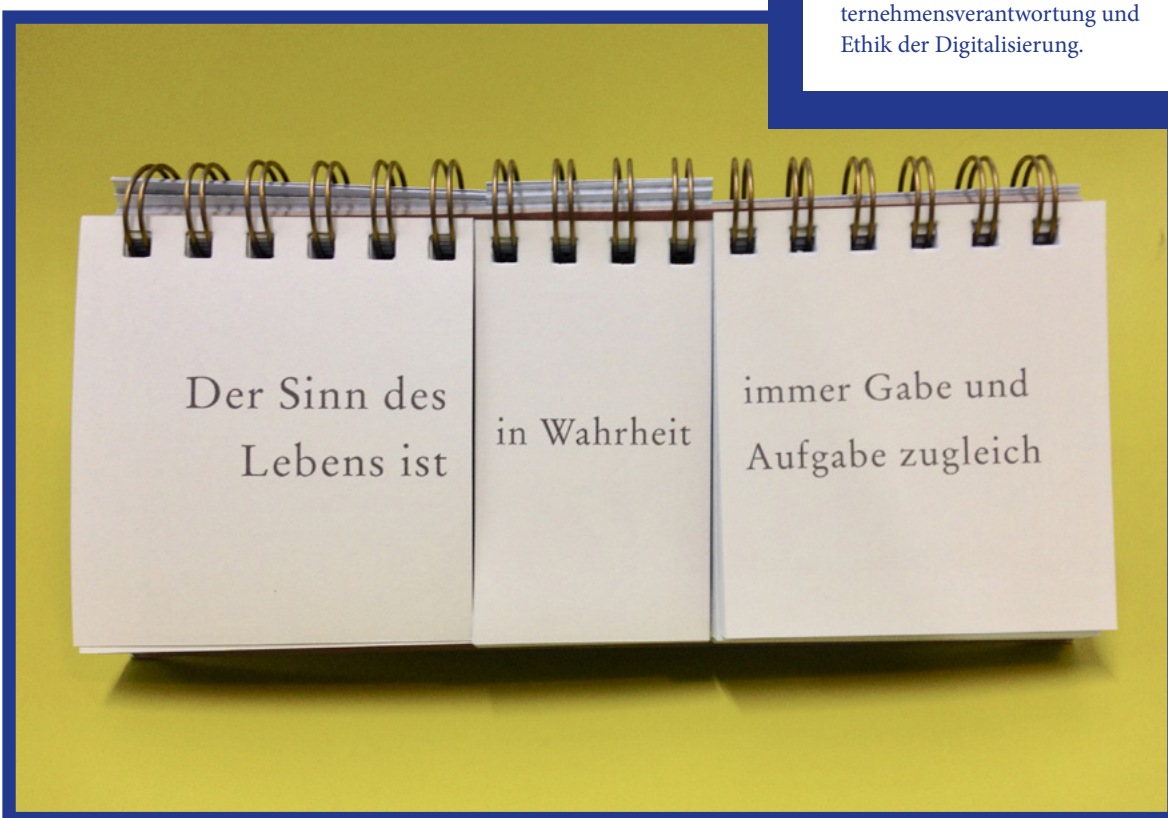 ternehmensverantwortung und
Ethik der Digitalisierung.
Der Sinn des
Lebens ist
in Wahrheit
immer Gabe und
Aufgabe zugleich